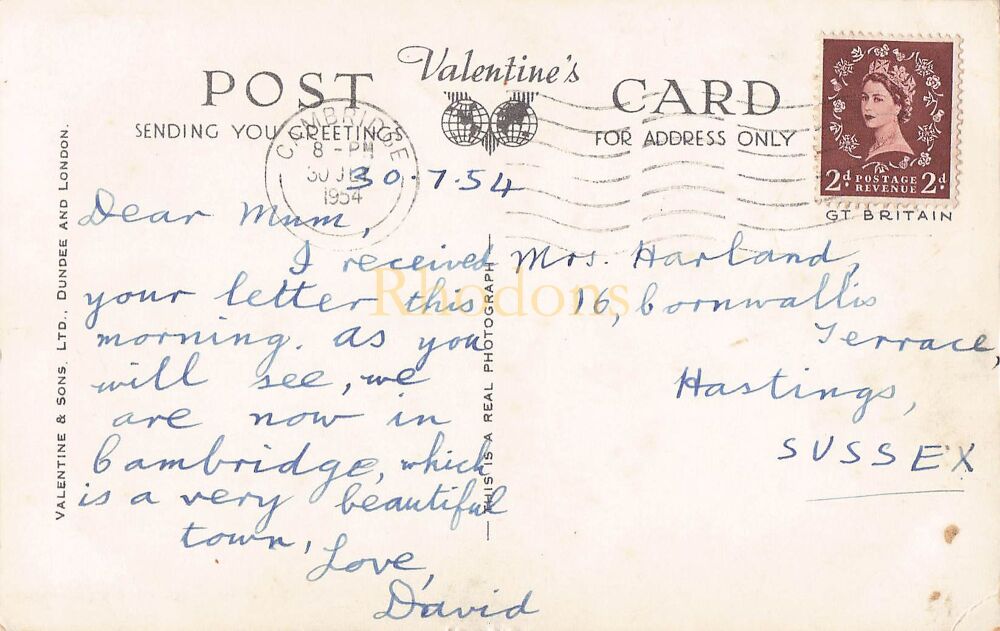 POST Valentine's CARD
SENDING YOU GREETINGS
FOR ADDRESS ONLY
CAMBRIDGE
8 - PM
30 JLY
1954
2d POSTAGE REVENUE 2d
GT BRITAIN
30.7.54
Dear Mum,
I received
your letter this
morning. As you
will see, we
are now in
Cambridge, which
is a very beautiful
town,
Love,
David
Mrs. Harland,
16, Cornwallis
Terrace,
Hastings,
SUSSEX
VALENTINE & SONS. LTD., DUNDEE AND LONDON.
THIS IS A REAL PHOTOGRAPH
Rhodons